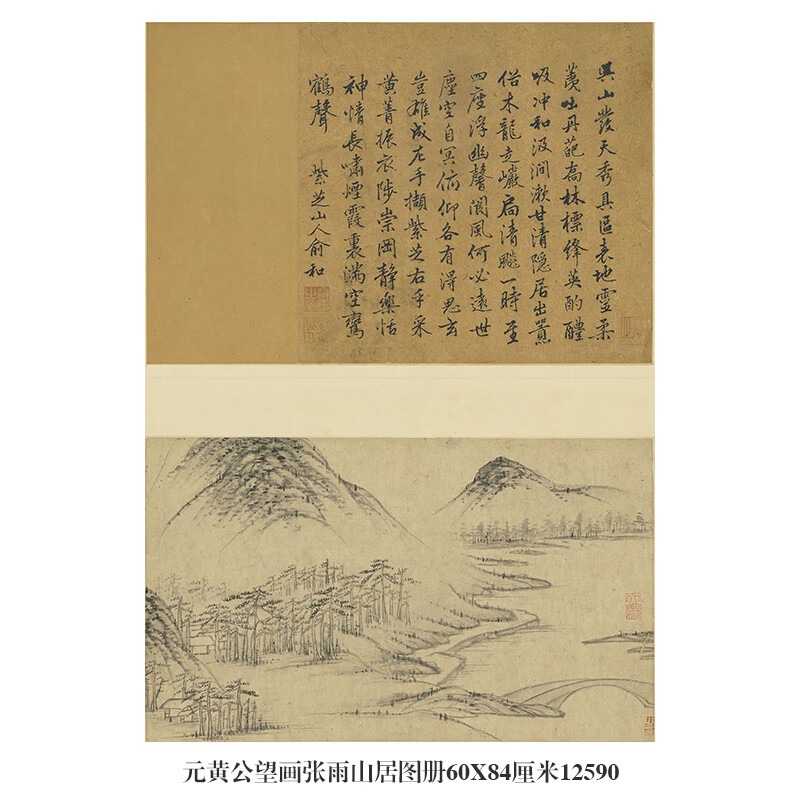 吴山發天秀具區表地靈柔
荑吐丹葩高林標絳英酌醴
吸冲和汲澗漱甘清隱居出囂
俗木龍走巖扃清飈一時至
四座浮幽馨閬風何必遠世
塵空自冥俯仰各有得思玄
豈雄成左手擷紫芝右手采
黃菁振衣陟崇岡静樂恬
神情長嘯煙霞裏滿空鸞
鶴聲
紫芝山人俞和
元黄公望画张雨山居图册60X84厘米12590